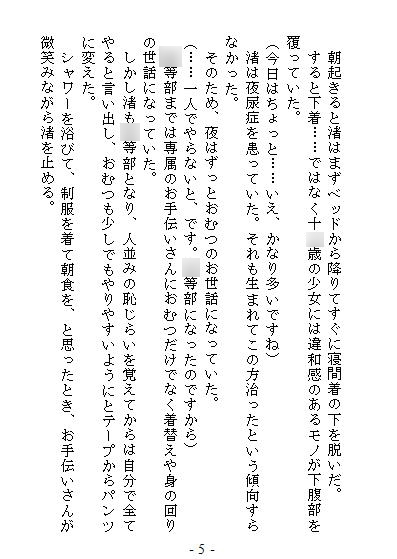 朝起きると渚はまずベッドから降りてすぐに寝間着の下を脱いだ。
すると下着……ではなく十歳の少女には違和感のあるモノが下腹部を
覆っていた。
(今日はちょっと……いえ、かなり多いですね)
渚は夜尿症を患っていた。それも生まれてこの方治ったという傾向すら
なかった。
そのため、夜はずっとおむつのお世話になっていた。
(……一人でやらないと、です。等部になったのですから)
等部までは専属のお手伝いさんにおむつだけでなく着替えや身の回り
の世話になっていた。
しかし渚も等部となり、人並みの恥じらいを覚えてからは自分で全て
やると言い出し、おむつも少しでもやりやすいようにとテープからパンツ
に変えた。
シャワーを浴びて、制服を着て朝食を、と思ったとき、お手伝いさんが
微笑みながら渚を止める。
- 5 -